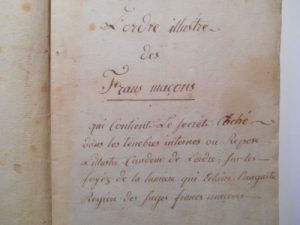 L'ordre illustre
des
Frans maçons
qui Contient Le Secret Caché
dans les tenebres internes ou Repose
L'illustre Candeur de L'ordre, Sur les
foyés de la lumiere qui Eclaire L'auguste
Region des Sages francs maçons